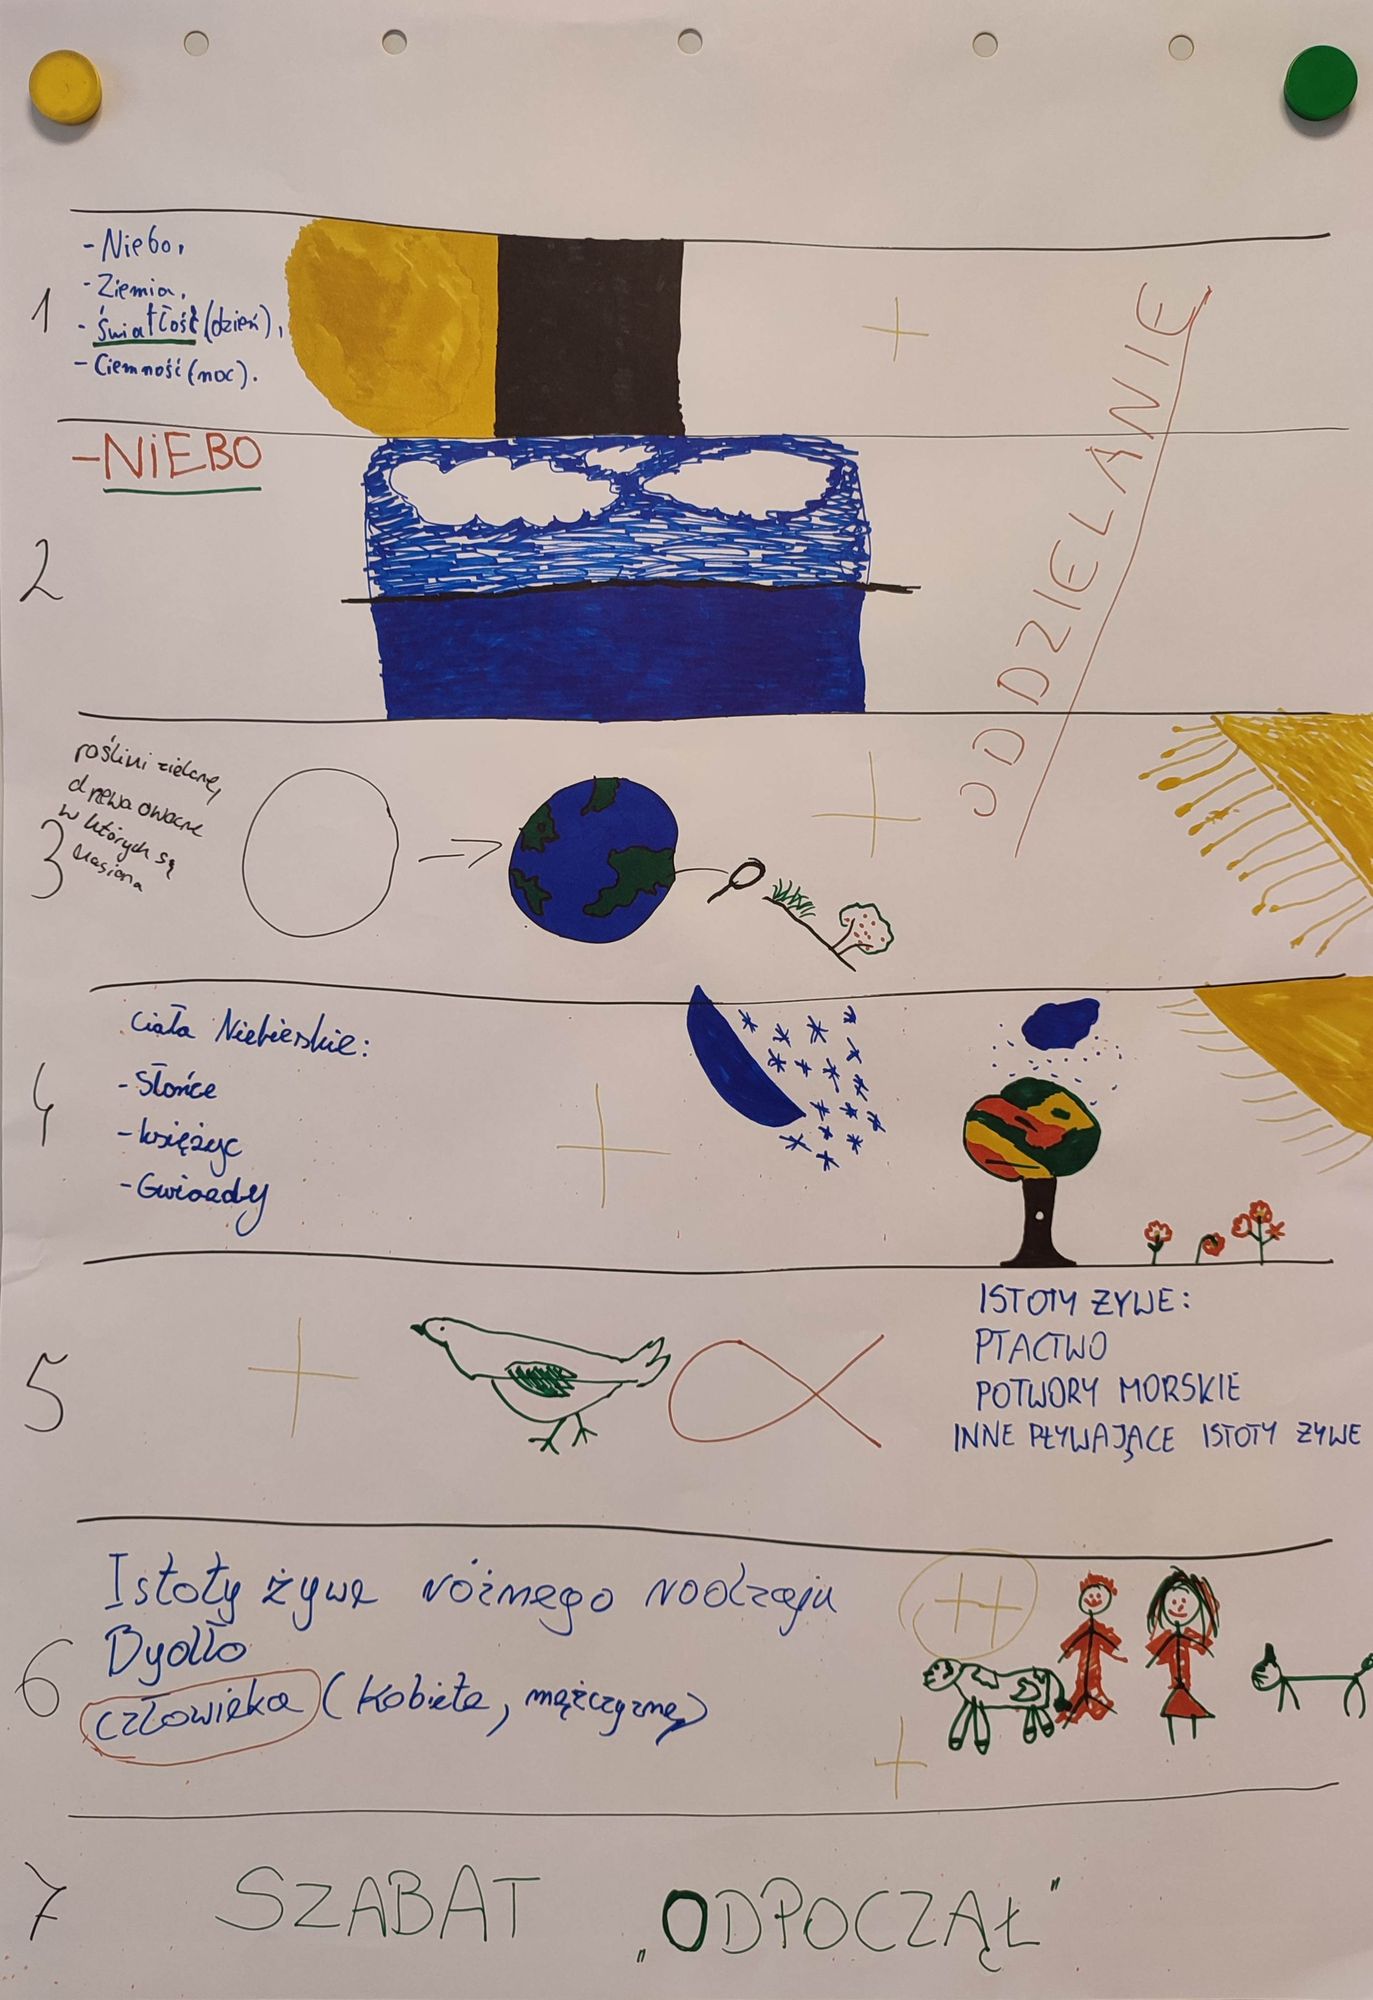 1
- Niebo,
- Ziemia,
- Światłość (dzień),
- Ciemność (noc).
ODDZIELANIE
2
- NIEBO
3
rośliny zielone,
drzewa owocne
w których są
nasiona
4
Ciała Niebieskie:
- Słońce
- księżyc
- Gwiazdy
5
ISTOTY ŻYWE:
PTACTWO
POTWORY MORSKIE
INNE PŁYWAJĄCE ISTOTY ŻYWE
6
Istoty żywe różnego rodzaju
Bydło
człowieka (kobietę, mężczyznę)
7
SZABAT „ODPOCZĄŁ"